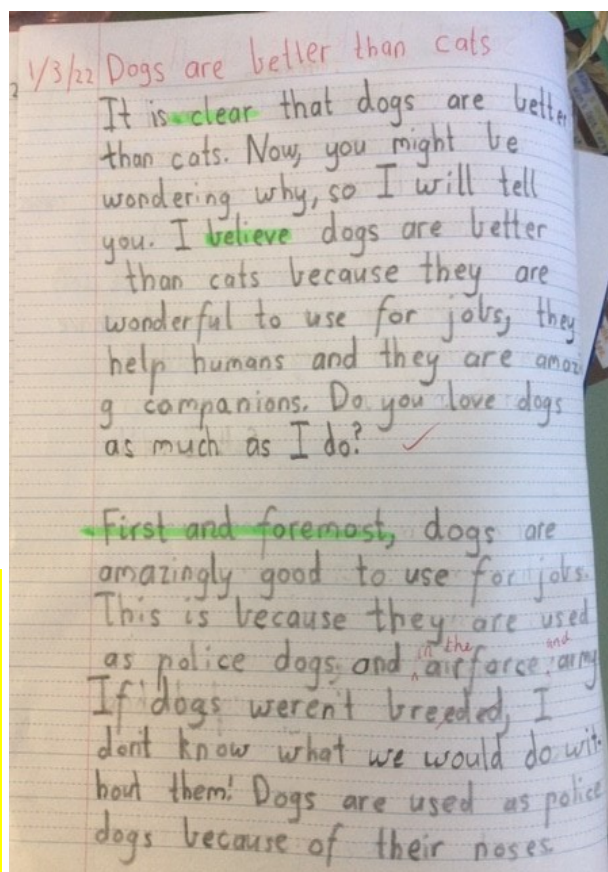 1/3/22 Dogs are better than cats
It is clear that dogs are better
than cats. Now, you might be
wondering why, so I will tell
you. I believe dogs are better
than cats because they are
wonderful to use for jobs, they
help humans and they are amazi
g companions. Do you love dogs
as much as I do?
First and foremost, dogs are
amazingly good to use for jobs.
This is because they are used
as police dogs and in the airforce and army
If dogs weren't breeded, I
dont know what we would do wit
hout them! Dogs are used as police
dogs because of their noses